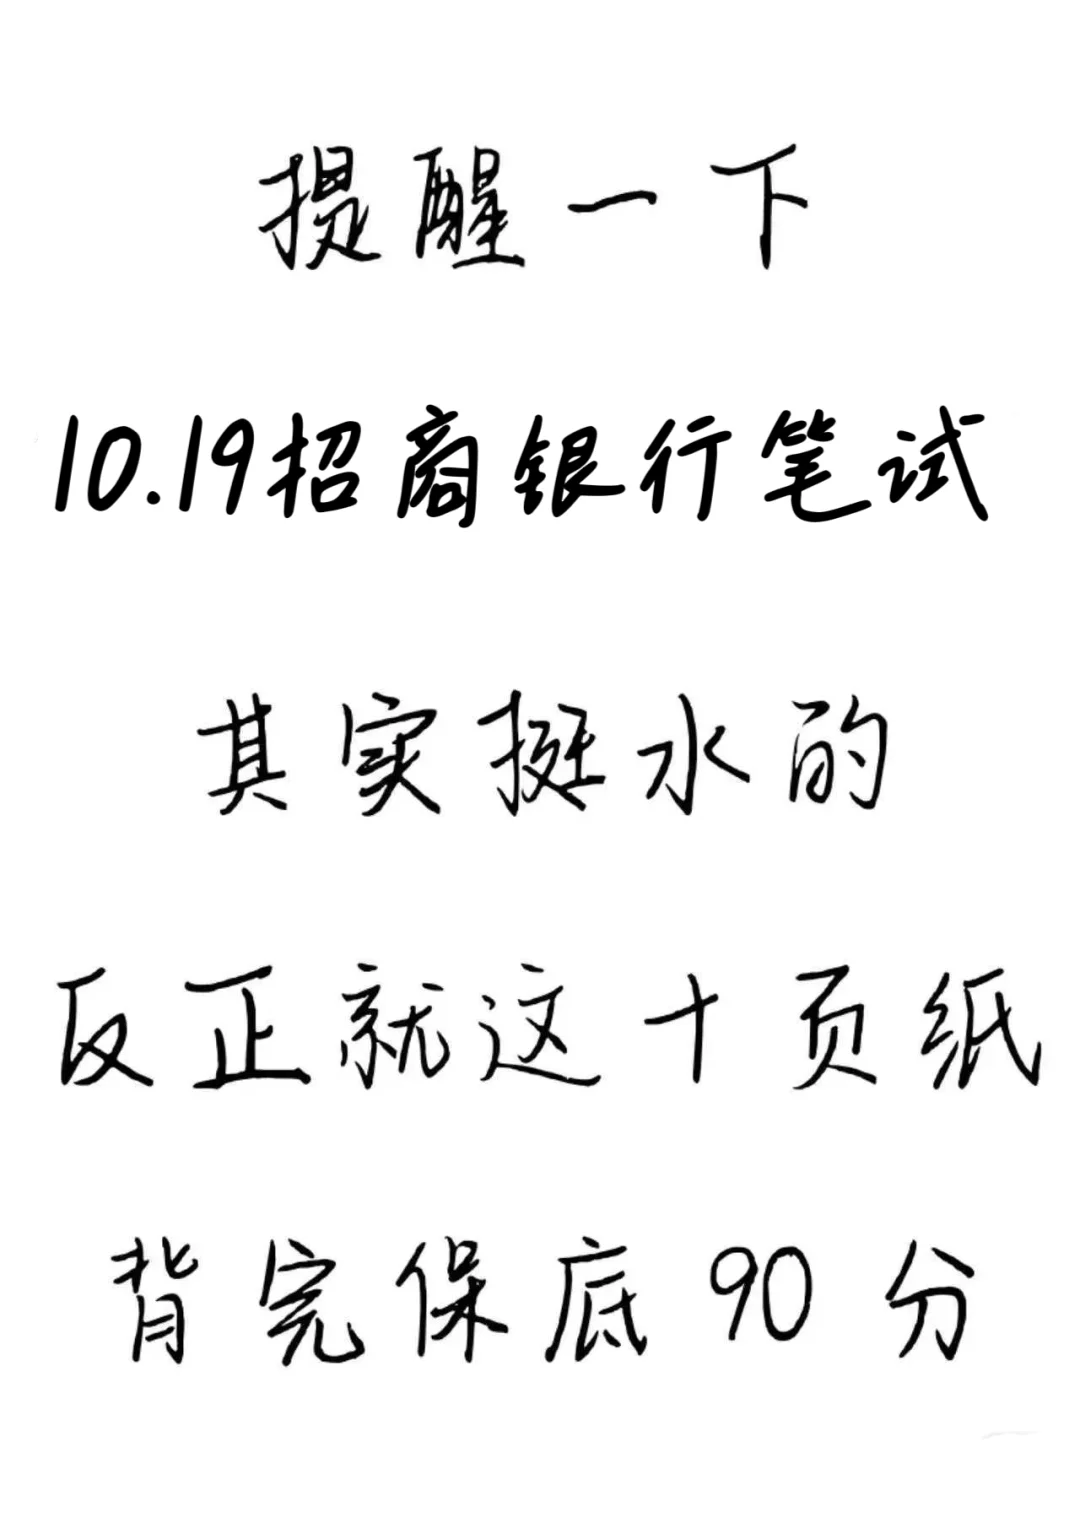 提醒一下
10.19招商银行笔试
其实挺水的
反正就这十页纸
背完保底90分